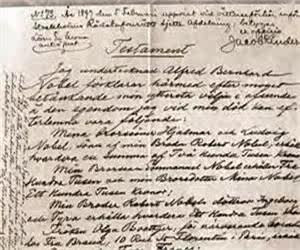 No 73. År 1897 den 5 Februari uppvist vid vittnesförhör inför
Stockholms Rådstufvurätts sjette Afdelning
Testament
Jag undertecknad Alfred Bernhard
Nobel förklarar härmed efter moget
betänkande min yttersta vilja i afseende
å den egendom jag vid min död kan ef-
terlemna vara följande:
Mina Brorsöner Hjalmar och Ludvig
Nobel, söner af min Broder Robert Nobel, erhålla
hvardera en summa af Två Hundra Tusen Kronor;
Min Brorson Emmanuel Nobel erhåller Tre
Hundra Tusen och min Brorsdotter Mina Nobel
Ett Hundra Tusen Kronor;
Min Broder Robert Nobels döttrar Ingeborg
och Tyra erhålla hvardera Ett Hundra Tusen
Fröken Olga Boettger, för närvarande boende
hos Fru Brand, 10 Rue St Florentin, Paris,